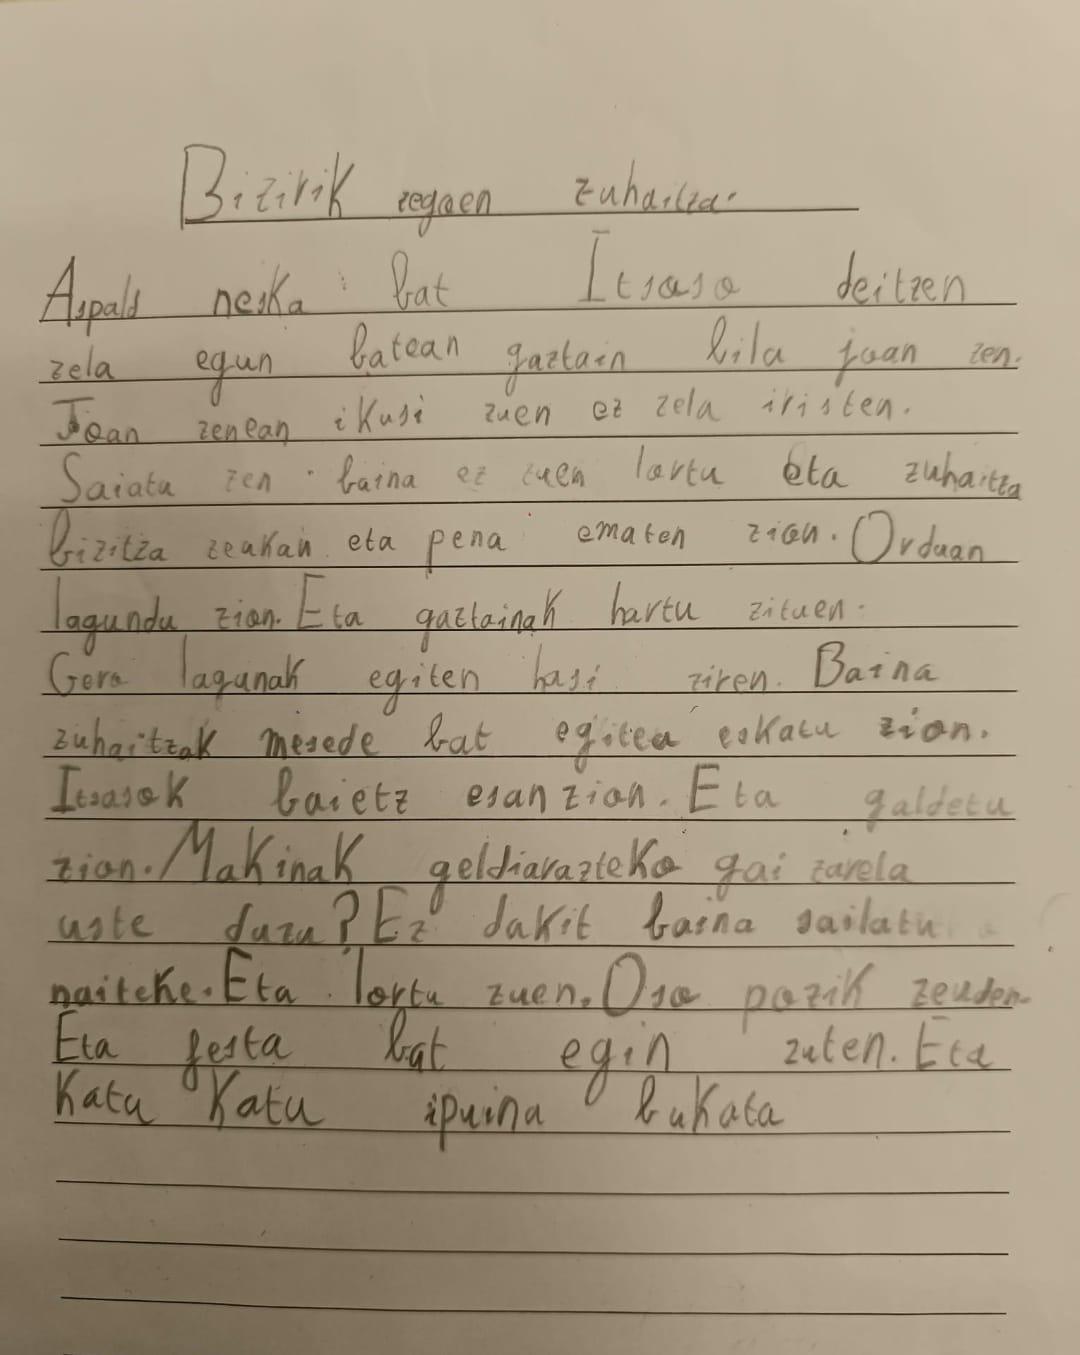 Bizirik zegoen zuhaitza.
Aspald neska bat Itsaso deitzen
zela egun batean gaztain bila joan zen.
Joan zenean ikusi zuen ez zela iristen.
Saiatu zen baina ez zuen lortu eta zuhaitza
bizitza zeukan eta pena ematen zion. Orduan
lagundu zion. Eta gaztainak hartu zituen.
Gero lagunak egiten hasi ziren. Baina
zuhaitzak mesede bat egitea eskatu zion.
Itsasok baietz esan zion. Eta galdetu
zion. Makinak geldiarazteko gai zarela
uste duzu? Ez dakit baina sailatu
naiteke. Eta lortu zuen. Oso pozik zeuden.
Eta festa bat egin zuten. Eta
Katu Katu ipuina bukata